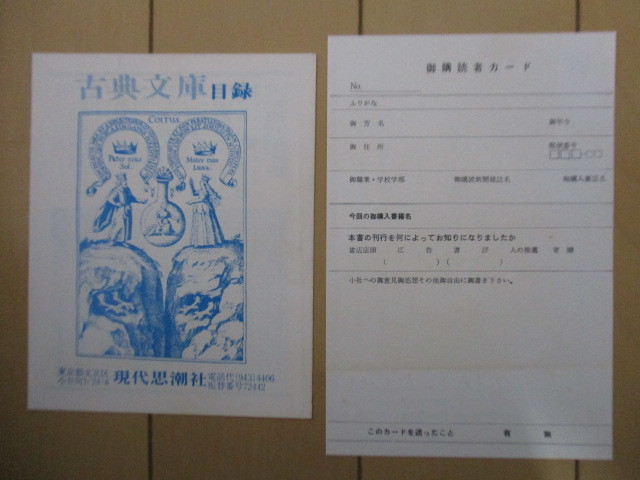 古典文庫目録
Coitus
Pater eius
Sol.
Mater eius
Luna.
東京都文京区
現代思潮社
電話代(943)4406
振替番号72442
御購読者カード
No.
ふりがな
御芳名
御住所
郵便番号
御職業・学校学部
御購読新聞雑誌名
御購入書店名
今回の御購入書籍名
本書の刊行を何によってお知りになりましたか
書店店頭 広告 書評 人の推薦 寄贈
( ) ( )
小社への御意見御感想その他御自由に御書き下さい。
このカードを送ったこと 有 無